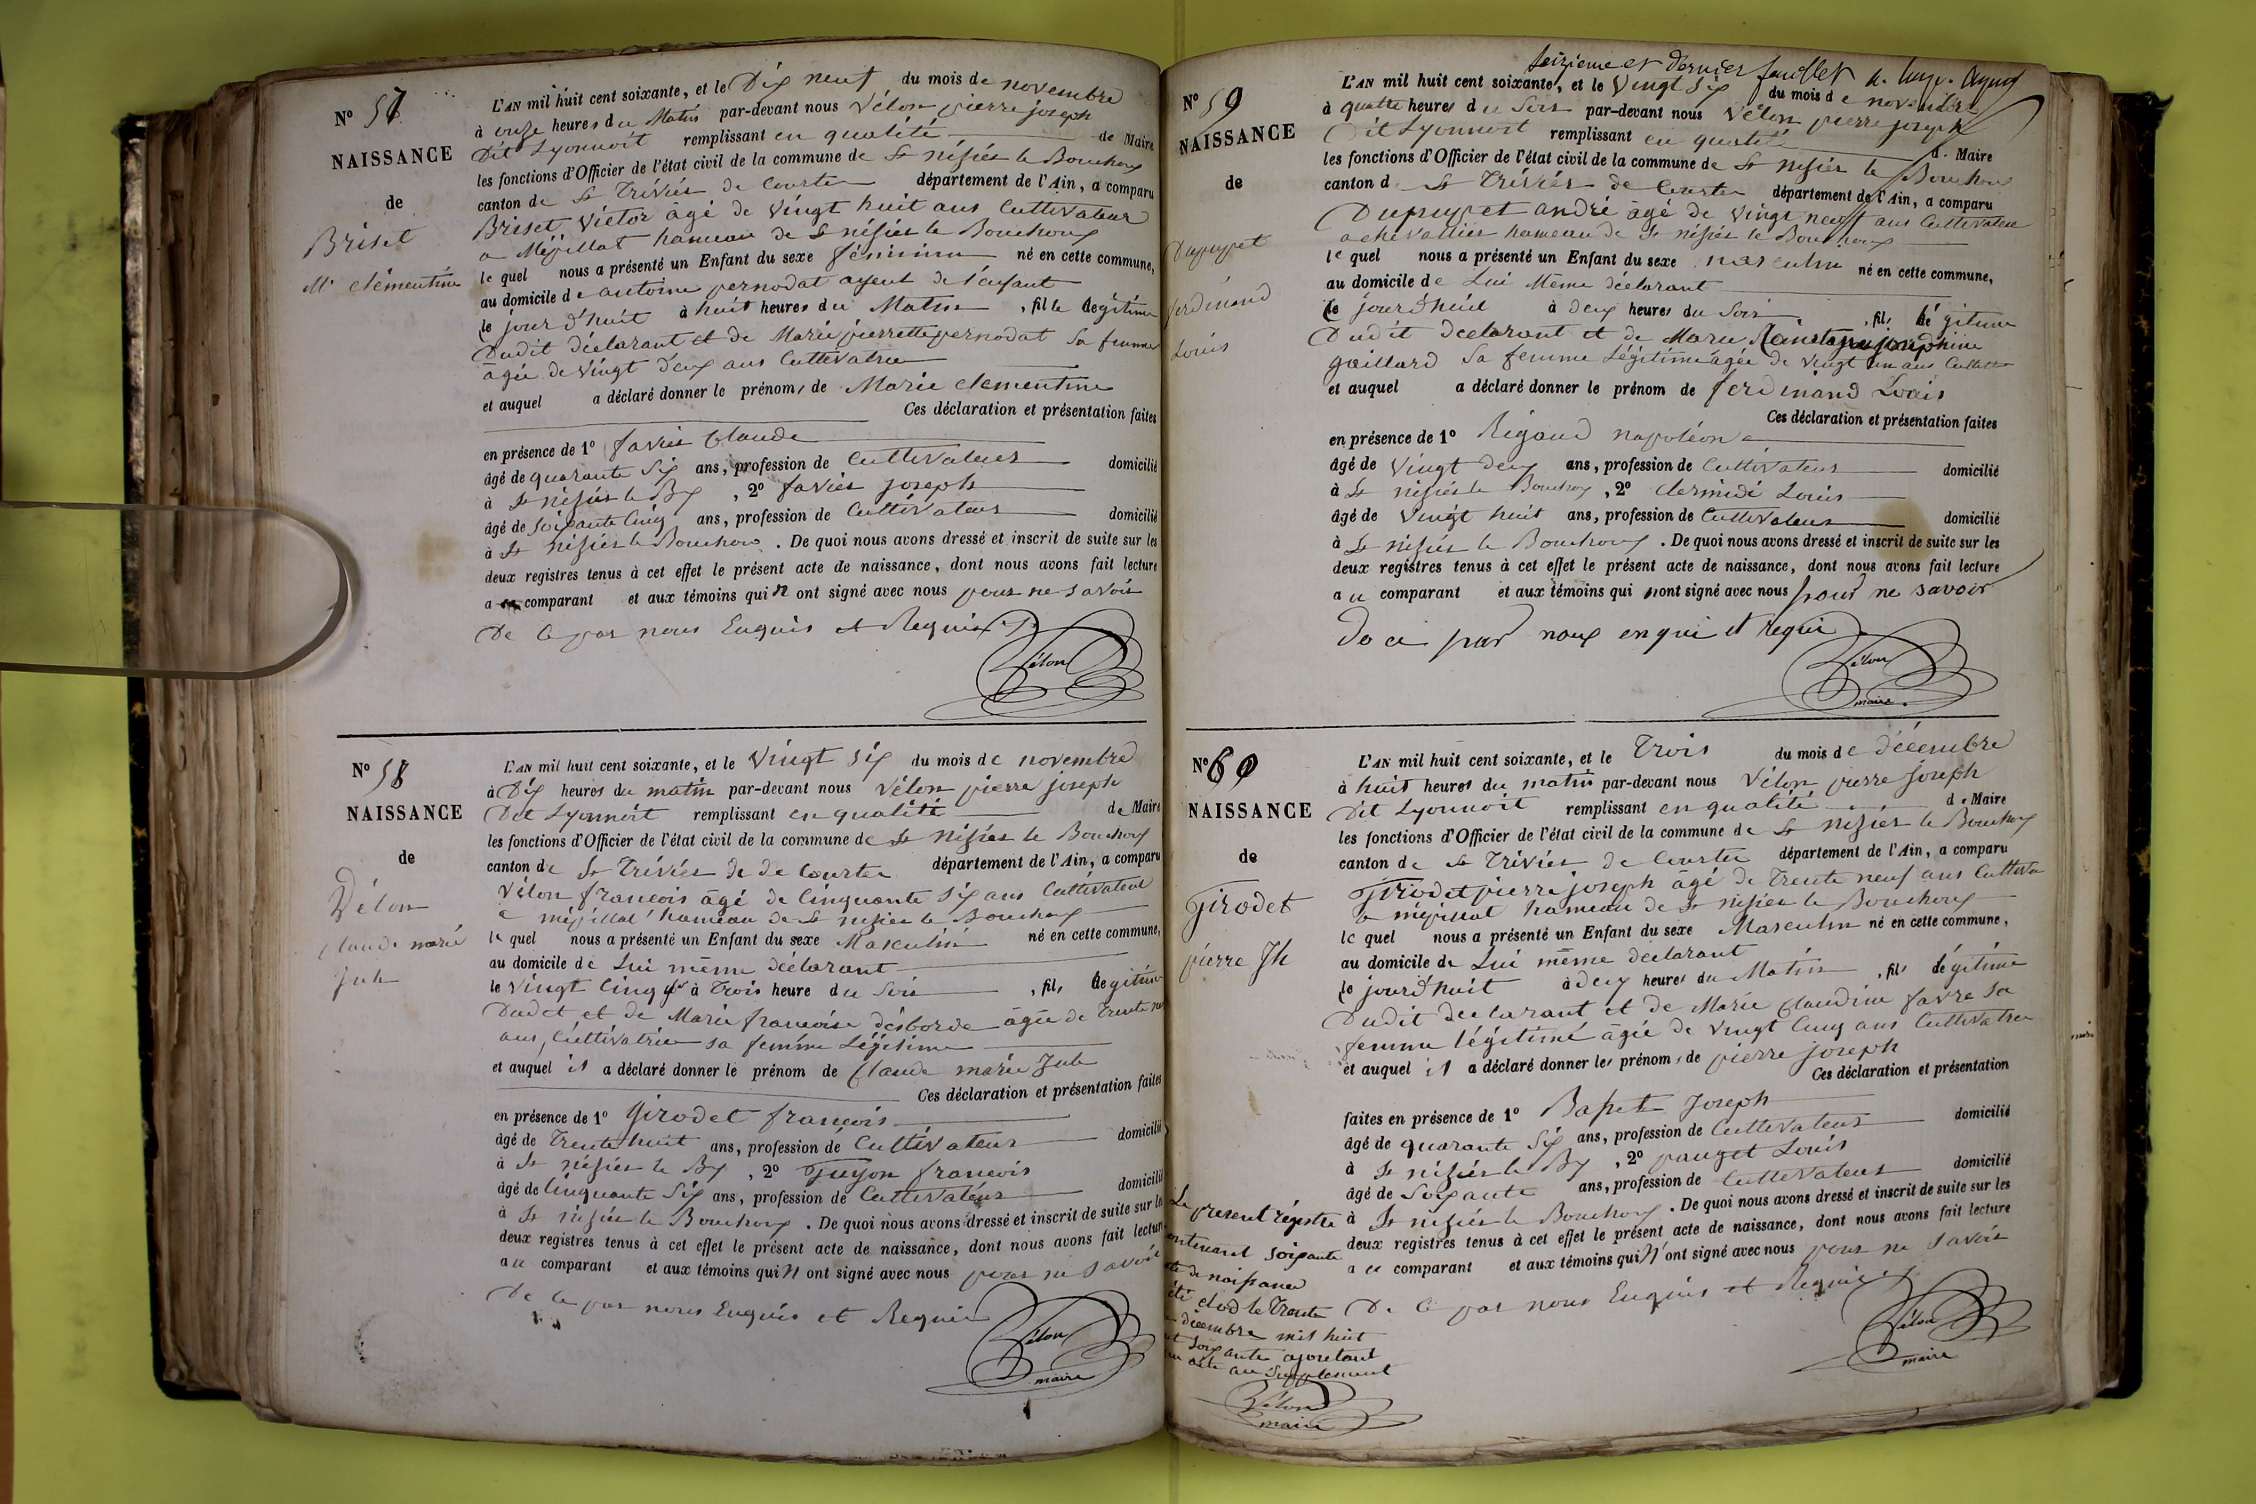 N° 57
NAISSANCE
de
Briset
Mie clémentine
L'AN mil huit cent soixante, et le Dix neuf du mois de novembre
à onze heures du Matin par-devant nous Vélon pierre joseph
Dit Lyonnoit remplissant en qualité de Maire
les fonctions d'Officier de l'état civil de la commune de St nisier le Bouchoux
canton de St Trivier de Courte département de l'Ain, a comparu
Briset Victor âgé de Vingt huit ans Cultivateur
a Mépillat hameau de St nisier le Bouchoux
le quel nous a présenté un Enfant du sexe féminin né en cette commune,
au domicile de antoine pernodat ayent de l'enfant
le jour d'huit à huit heures du Matin, fille legitime
Dudit déclarant et de Marie pierrette pernodat sa femme
âgée de Vingt deux ans Cultivatrice
et auquel a déclaré donner le prénoms de Marie clementine
Ces déclaration et présentation faites
en présence de 1° favier Claude
âgé de quarante Six ans, profession de Cultivateur domicilié
à St nisier le Bx, 2° favier joseph
âgé de soixante Cinq ans, profession de Cultivateur domicilié
à St nisier le Bouchoux. De quoi nous avons dressé et inscrit de suite sur les
deux registres tenus à cet effet le présent acte de naissance, dont nous avons fait lecture
au comparant et aux témoins qui n ont signé avec nous pour ne savoir
De Ce par nous Enquis et Requis
Vélon
N° 58
NAISSANCE
de
Vélon
claude marie
Jule
L'AN mil huit cent soixante, et le Vingt Six du mois de novembre
à Dix heures du matin par-devant nous Vélon pierre joseph
Dit Lyonnoit remplissant en qualité de Maire
les fonctions d'Officier de l'état civil de la commune de St Nisier le Bouchoux
canton de St Trivier de de Courte département de l'Ain, a comparu
Vélon francois âgé de Cinquante Six ans Cultivateur
a mépillat hameau de St nisier le Bouchoux
le quel nous a présenté un Enfant du sexe Masculin né en cette commune,
au domicile de Lui même déclarant
le Vingt Cinq à Trois heure du Soir, fils legitime
Dudet et de Marie francoise désborde âgée de Trente
ans, Cultivatrice sa femme Légitime
et auquel il a déclaré donner le prénom de Claude marie Jule
Ces déclaration et présentation faites
en présence de 1° Girodet francois
âgé de Trente huit ans, profession de Cultivateur domicilié
à St nisier le Bx, 2° Guyon francois
âgé de Cinquante Six ans, profession de Cultivateur domicilié
à St nisier le Bouchoux. De quoi nous avons dressé et inscrit de suite sur les
deux registres tenus à cet effet le présent acte de naissance, dont nous avons fait lecture
au comparant et aux témoins qui n ont signé avec nous pour ne savoir
De Ce par nous Enquis et Requis
Vélon
maire
Seizieme et dernier feuillet
N° 59
NAISSANCE
de
Dupupet
ferdinand
Louis
L'AN mil huit cent soixante, et le Vingt Six du mois de novembre
à quatre heures du Soir par-devant nous Vélon pierre joseph
Dit Lyonnoit remplissant en qualité de Maire
les fonctions d'Officier de l'état civil de la commune de St Nisier le Bouchoux
canton d St Trivier de Courte département de l'Ain, a comparu
Dupupet andré âgé de Vingt neuf ans Cultivateur
a chevallier hameau de St nisier le Bouchoux
le quel nous a présenté un Enfant du sexe masculin né en cette commune,
au domicile de Lui Même déclarant
le jourd'huit à deux heures du Soir, fils légitime
Dudit déclarant et de Marie josephine
gaillard sa femme Légitime âgée de Vingt un ans
et auquel a déclaré donner le prénom de ferdinand Louis
Ces déclaration et présentation faites
en présence de 1° Rigaud napoléon
âgé de Vingt deux ans, profession de Cultivateur domicilié
à St nisier le Bouchoux, 2° clermidi Louis
âgé de Vingt huit ans, profession de Cultivateur domicilié
à St nisier le Bouchoux. De quoi nous avons dressé et inscrit de suite sur les
deux registres tenus à cet effet le présent acte de naissance, dont nous avons fait lecture
au comparant et aux témoins qui nont signé avec nous pour ne savoir
de ce par nous enqui et requi
Vélon
maire
N° 60
NAISSANCE
de
Girodet
pierre Jh
L'AN mil huit cent soixante, et le Trois du mois de décembre
à huit heures du matin par-devant nous Vélon pierre joseph
Dit Lyonnoit remplissant en qualité de Maire
les fonctions d'Officier de l'état civil de la commune de St nisier le Bouchoux
canton de St Trivier de Courte département de l'Ain, a comparu
Girodet pierre joseph âgé de Trente neuf ans
a mépillat hameau de St nisier le Bouchoux
le quel nous a présenté un Enfant du sexe Masculin né en cette commune,
au domicile de Lui même déclarant
le jourd'huit à deux heures du Matin, fils légitime
Dudit declarant et de Marie Claudine favre sa
femme légitime âgée de Vingt Cinq ans Cultivatrice
et auquel il a déclaré donner les prénoms de pierre joseph
Ces déclaration et présentation
faites en présence de 1° Joseph
âgé de quarante Six ans, profession de Cultivateur domicilié
à St nisier le Bx, 2° pauget Louis
âgé de Soixante ans, profession de Cultivateur domicilié
à St nisier le Bouchoux. De quoi nous avons dressé et inscrit de suite sur les
deux registres tenus à cet effet le présent acte de naissance, dont nous avons fait lecture
au comparant et aux témoins qui n'ont signé avec nous pour ne savoir
De Ce par nous Enquis et Requis
Vélon
maire
Le present régistre
contenant soixante
de naissance
été clos le Trente
decembre mil huit
soixante ajoutant
un acte au Supplement
Vélon
maire